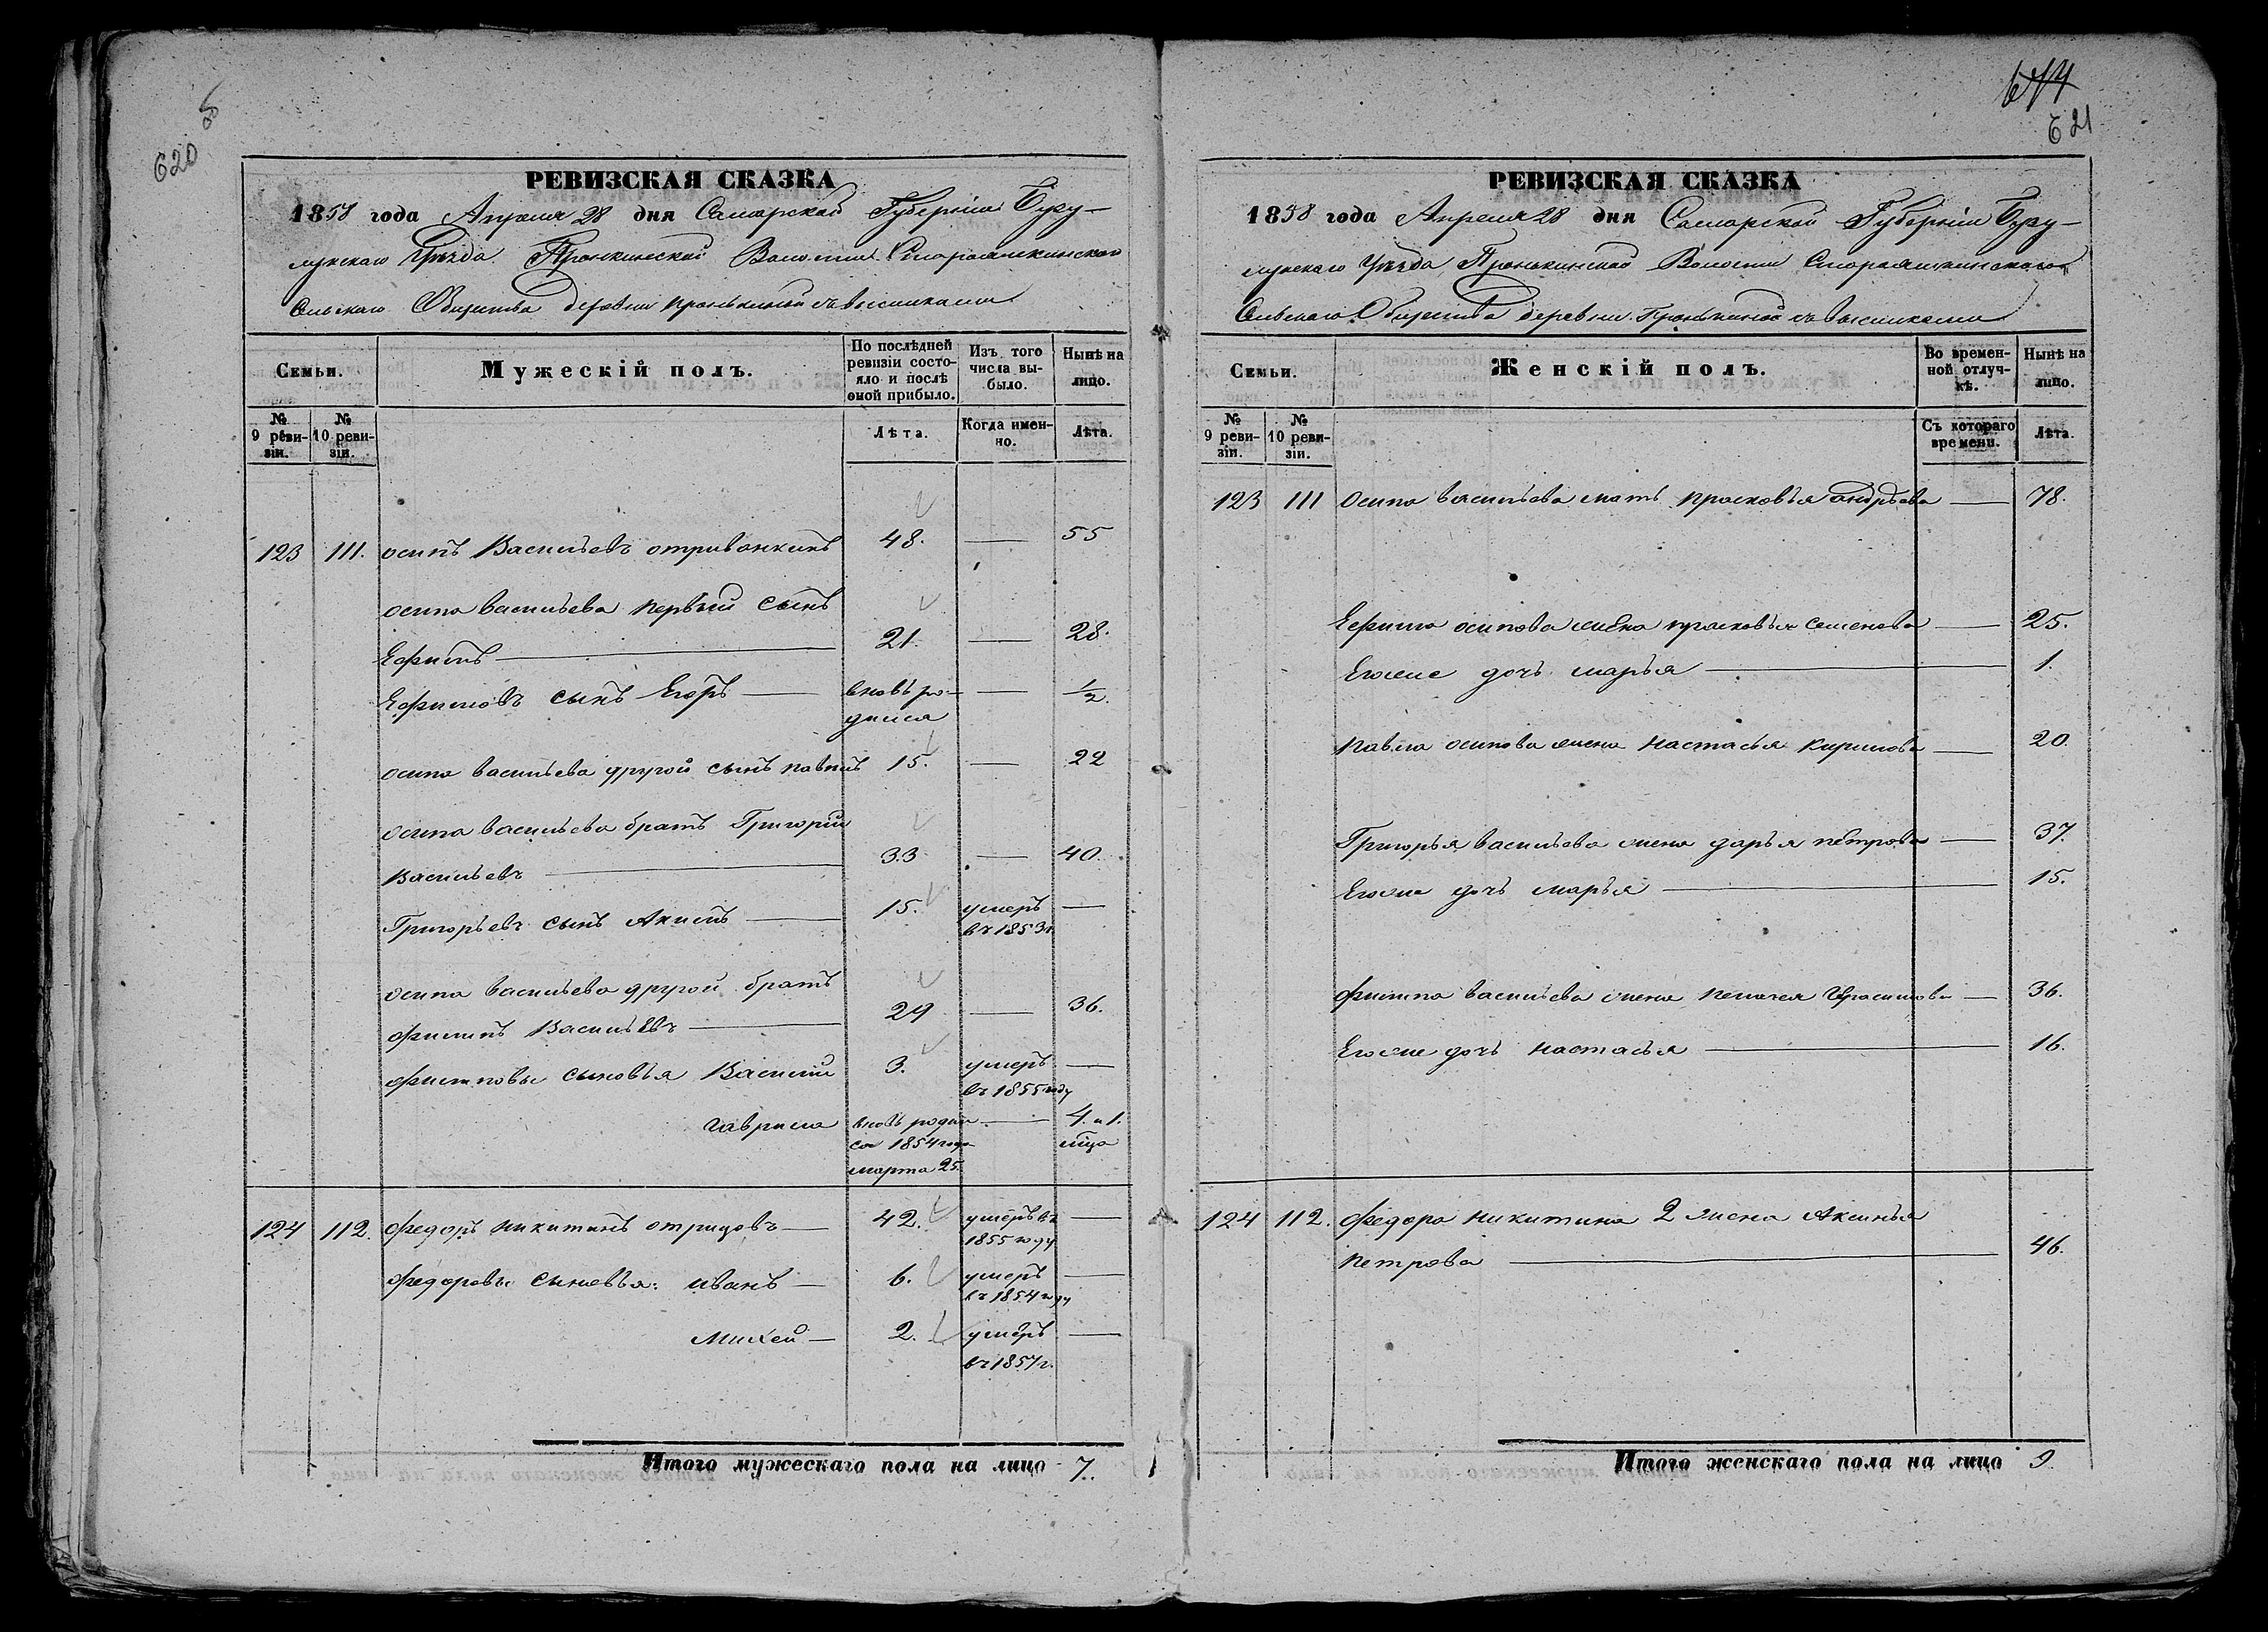 620
РЕВИЗСКАЯ СКАЗКА
1858 года Апреля 28 дня Самарской Губерніи Бугу-
лукскаго Уѣзда Пронькинской Волости
Сельскаго Общества деревни Пронькиной съ выселками
Семьи.
Мужескій полъ.
По послѣдней ревизіи состояло и послѣ оной прибыло.
Изъ того числа выбыло.
Нынѣ на лицо.
№ 9 ревизіи.
№ 10 ревизіи.
Лѣта.
Когда именно.
Лѣта.
123 111. осипъ Васильевъ 48. — 55
осипа васильева первый сынъ
Ефимъ — 21. — 28.
Ефимовъ сынъ Егоръ — вновь ро- — 1/2.
дился
осипа васильева другой сынъ павелъ 15. — 22
осипа васильева братъ Григорій
Васильевъ — 33 — 40.
Григорьевъ сынъ Акимъ — 15. умеръ —
въ 1853 г.
осипа васильева другой братъ
филипъ Васильевъ — 29 — 36.
филиповы сыновья Василій 3. умеръ —
въ 1855 году
гаврила вновь родил — 4. и 1.
ся 1854 года мѣца
марта 25.
124 112. федоръ никитинъ — 42. умеръ въ —
1855 году
федоровы сыновья: иванъ — 6. умеръ —
въ 1854 году
михей — 2. умеръ —
въ 1857 г.
Итого мужескаго пола на лицо 7.
621
РЕВИЗСКАЯ СКАЗКА
1858 года Апреля 28 дня Самарской Губерніи Бугу-
лукскаго Уѣзда Пронькинской Волости
Сельскаго Общества деревни Пронькиной съ выселками
Семьи.
Женскій полъ.
Во временной отлучкѣ.
Нынѣ на лицо.
№ 9 ревизіи.
№ 10 ревизіи.
Съ котораго времени.
Лѣта.
123 111 осипа васильева мать прасковья андрѣева — 78.
Ефима осипова жена прасковья семенова — 25.
Егоже дочь марья — 1.
павла осипова жена настасья кирилова — 20.
Григорья васильева жена дарья петрова — 37.
Егоже дочь марья — 15.
филипа васильева жена пелагея Герасимова — 36.
Егоже дочь настасья — 16.
124 112. федора никитина 2 жена Аксинья
петрова — 46.
Итого женскаго пола на лицо 9